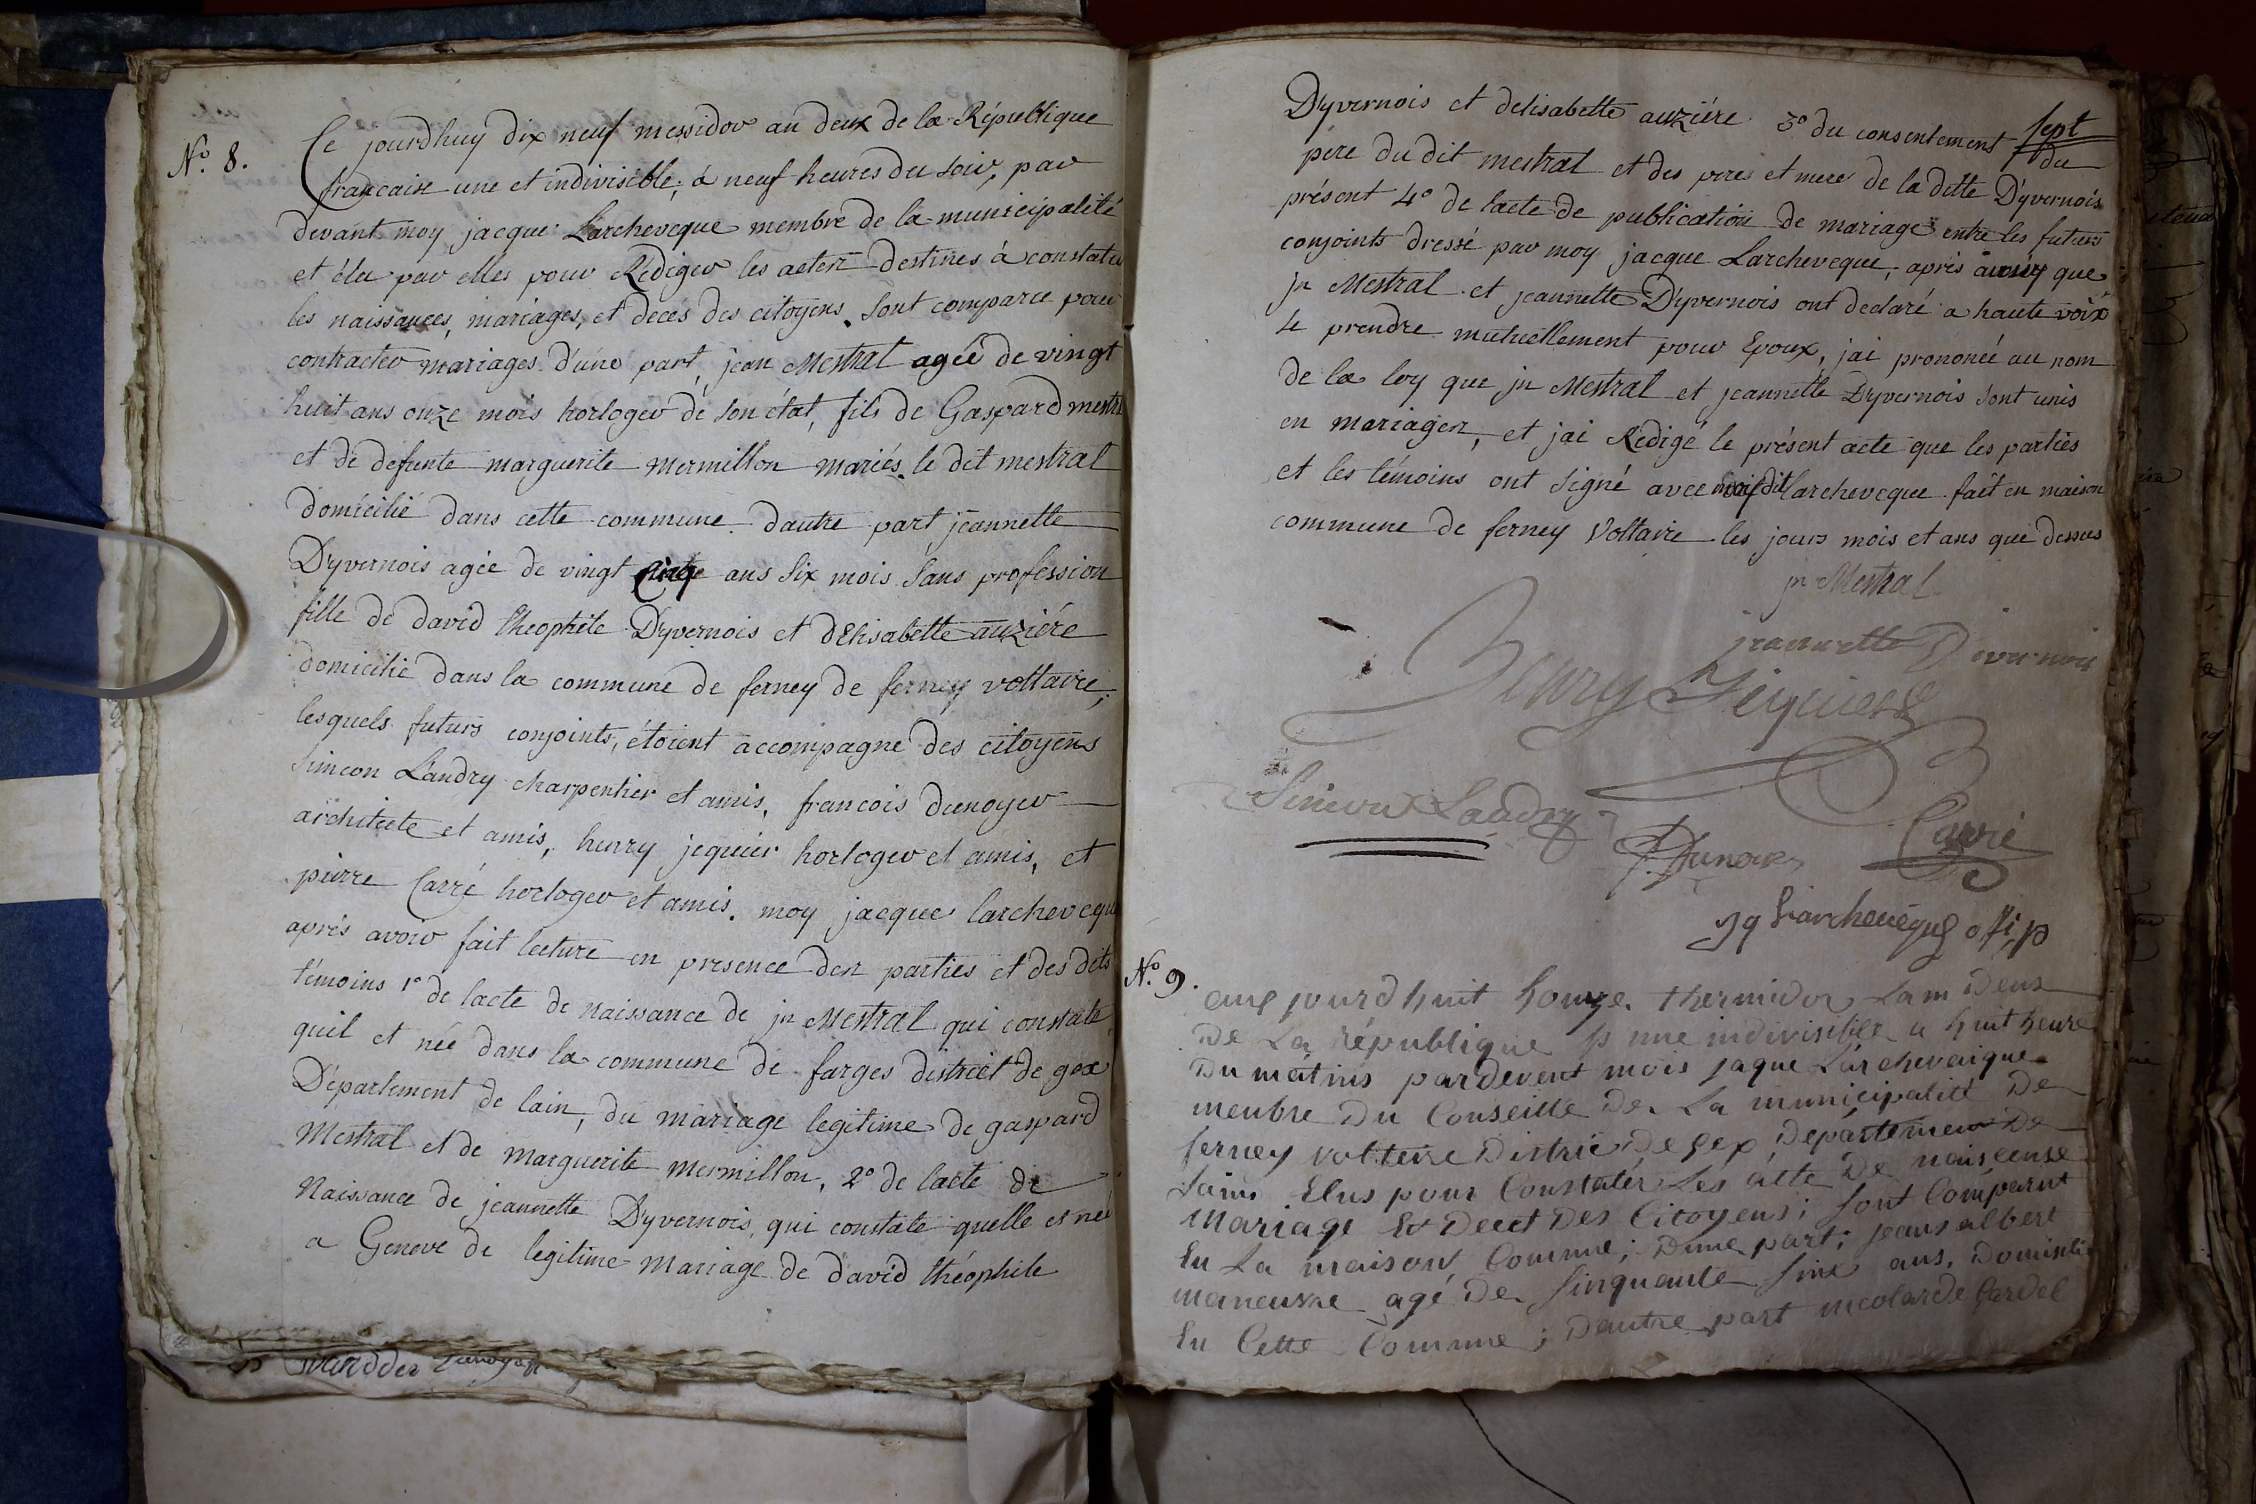 N.° 8.
Ce jourdhuy dix neuf messidor an deux de la République
francaise une et indivisible, à neuf heures du soir, par
devant moy jacque Larcheveque membre de la municipalité
et élu par elles pour Rédiger les acten destinés à constater
les naissances, mariages, et decés des citoyens. sont comparce pour
contracter mariages d'une part, jean Mestral agée de vingt
huit ans onze mois horloger de son état, fils de Gaspard mestr
et de defunte marguerite mermillon mariés. le dit mestral
domicilié dans cette commune. dautre part jeannette
Dyvernois agée de vingt cinq ans six mois sans profession
fille de david théophile Dyvernois et dElisabette auziére
domicilié dans la commune de ferney de ferney voltaire,
lesquels futurs conjoints, étoient accompagne des citoyens
simeon Landry charpentier et amis, francois dunoyer
architecte et amis, henry jequier horloger et amis, et
pierre Carré horloger et amis. moy jacque larchevequ
aprés avoir fait lecture en presence den parties et des dits
témoins 1° de lacte de naissance de jn Mestral qui constate
quil et née dans la commune de farges district de gex
Département de lain, du mariage legitime de gaspard
Mestral et de marguerite mermillon, 2° de lacte de
Naissance de jeannette Dyvernois, qui constate quelle et né
a Geneve de legitime Mariage de david théophile
sept
Dyvernois et delisabette auziére 3° du consentement du
père du dit mestral et des pere et mere de la ditte Dyvernois
présent 4° de lacte de publication de mariage entre les futurs
conjoints dressé par moy jacque Larcheveque, aprés que
jn Mestral et jeannette Dyvernois ont declaré a haute voix
se prendre mutuellement pour Epoux, jai prononcé au nom
de la loy que jn Mestral et jeannette Dyvernois sont unis
en mariagen, et jai Rédigé le présent acte que les parties
et les témoins ont signé avec moydit larcheveque fait en maison
commune de ferney Voltaire les jours mois et ans que dessus
jn Mestral
jeannette Divernois
Henry Jequier
Simeon Landry
Dunoyer
Carré
Jq Larchevêque offi, p
N.° 9.
aujourdhuit honze thermidor Lam deux
De La république une indivisible a huit heure
Du matins pardevent mois jaque Larchevaique
menbre Du Conseille De La municipalité De
ferney voltere Distric De gex Département De
Lain Elus pour Constatér Les atte De naiscense
Mariage Et Decet Des Citoyens; sont Comparut
En La maison Comune; Dune part; jeans albert
maneuvre agé De sinquante sinc ans, Domicili
En Cette Comune; Deautre part